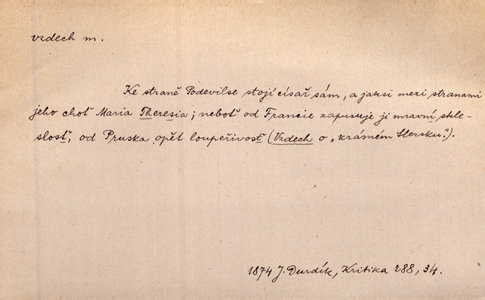 vzdech m.
Ke straně Podevilse stojí císař sám, a jaksi mezi stranami
jeho choť Maria Theresia; neboť od Francie zapuzuje ji mravní skle-
slosť, od Pruska opět loupeživosť (Vzdech o „krásném Slezsku“).
1874 J. Durdík, Kritika 288, 34.